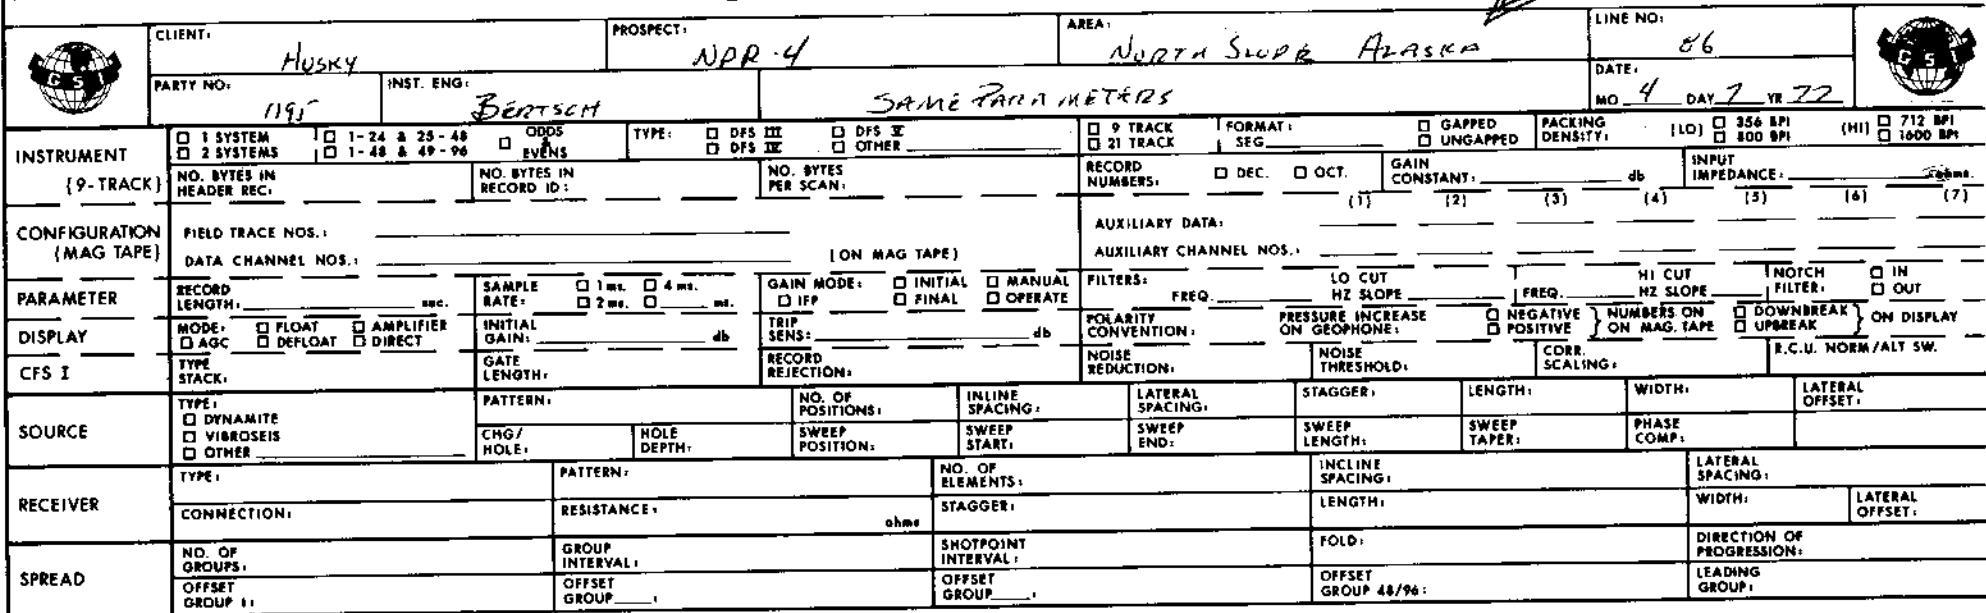 CLIENT: HUSKY PROSPECT: NPR-4 AREA: NORTH SLOPE ALASKA LINE NO: 86
GSI
PARTY NO: 1195 INST. ENG: BERTSCH SAME PARAMETERS DATE: MO 4 DAY 7 YR 77
GSI
INSTRUMENT (9-TRACK)
☐ 1 SYSTEM ☐ 1-24 & 25-48 ☐ ODDS & EVENS TYPE: ☐ DFS III ☐ DFS V ☐ 9 TRACK FORMAT: ☐ GAPPED PACKING DENSITY: (LO) ☐ 356 BPI (HI) ☐ 712 BPI
☐ 2 SYSTEMS ☐ 1-48 & 49-96 ☐ DFS IV ☐ OTHER ☐ 21 TRACK SEG ☐ UNGAPPED ☐ 800 BPI ☐ 1600 BPI
NO. BYTES IN HEADER REC: NO. BYTES IN RECORD ID: NO. BYTES PER SCAN: RECORD NUMBERS: ☐ DEC. ☐ OCT. GAIN CONSTANT: db INPUT IMPEDANCE: ohms.
CONFIGURATION (MAG TAPE)
(1) (2) (3) (4) (5) (6) (7)
FIELD TRACE NOS.: AUXILIARY DATA:
DATA CHANNEL NOS.: (ON MAG TAPE) AUXILIARY CHANNEL NOS.:
PARAMETER
RECORD LENGTH: sec. SAMPLE RATE: ☐ 1 ms. ☐ 4 ms. ☐ 2 ms. ☐ ms. GAIN MODE: ☐ INITIAL ☐ MANUAL ☐ IFP ☐ FINAL ☐ OPERATE FILTERS: LO CUT FREQ. HZ SLOPE HI CUT FREQ. HZ SLOPE NOTCH FILTER: ☐ IN ☐ OUT
DISPLAY
MODE: ☐ FLOAT ☐ AMPLIFIER ☐ AGC ☐ DEFLOAT ☐ DIRECT INITIAL GAIN: db TRIP SENS: db POLARITY CONVENTION: PRESSURE INCREASE ON GEOPHONE: ☐ NEGATIVE ☐ POSITIVE } NUMBERS ON ON MAG. TAPE ☐ DOWNBREAK ☐ UPBREAK } ON DISPLAY
CFS I
TYPE STACK: GATE LENGTH: RECORD REJECTION: NOISE REDUCTION: NOISE THRESHOLD: CORR. SCALING: R.C.U. NORM/ALT SW.
SOURCE
TYPE: ☐ DYNAMITE ☐ VIBROSEIS ☐ OTHER
PATTERN: NO. OF POSITIONS: INLINE SPACING: LATERAL SPACING: STAGGER: LENGTH: WIDTH: LATERAL OFFSET:
CHG/HOLE: HOLE DEPTH: SWEEP POSITION: SWEEP START: SWEEP END: SWEEP LENGTH: SWEEP TAPER: PHASE COMP:
RECEIVER
TYPE: PATTERN: NO. OF ELEMENTS: INCLINE SPACING: LATERAL SPACING:
CONNECTION: RESISTANCE: ohms STAGGER: LENGTH: WIDTH: LATERAL OFFSET:
SPREAD
NO. OF GROUPS: GROUP INTERVAL: SHOTPOINT INTERVAL: FOLD: DIRECTION OF PROGRESSION:
OFFSET GROUP 1: OFFSET GROUP : OFFSET GROUP : OFFSET GROUP 48/96: LEADING GROUP: